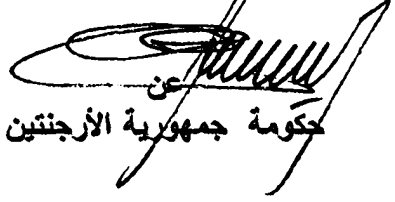 عن
حكومة جمهورية الأرجنتين